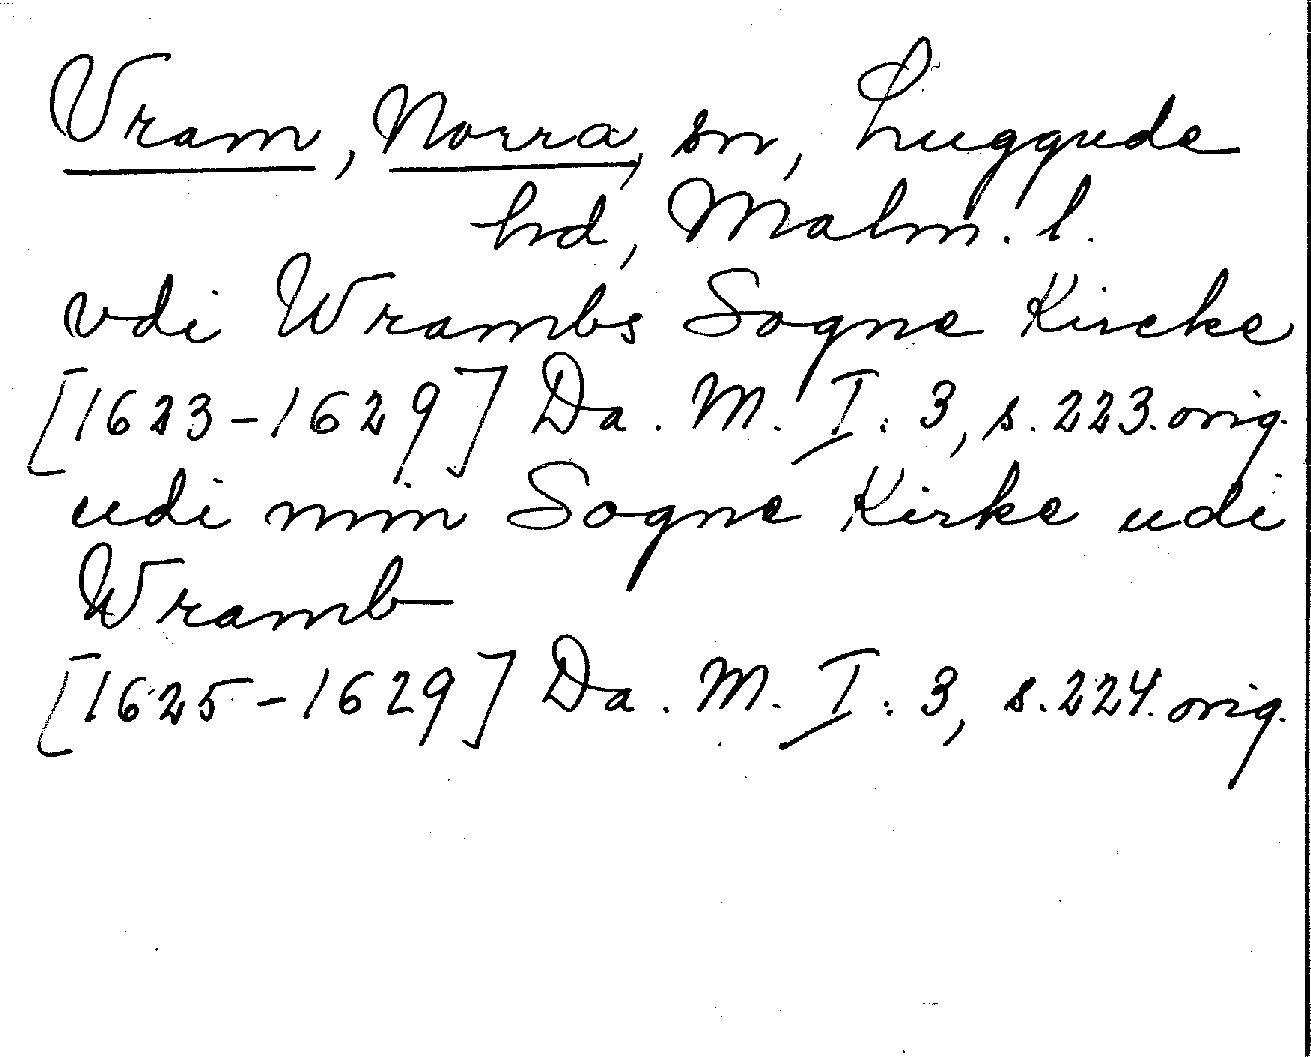 Vram, Norra, sn, Luggude
hd, Malm. l.
vdi Wrambs Sogne Kircke
[1623-1629] Da. M. I: 3, s. 223. orig.
udi min Sogne Kirke udi
Wramb
[1625-1629] Da. M. I: 3, s. 224. orig.